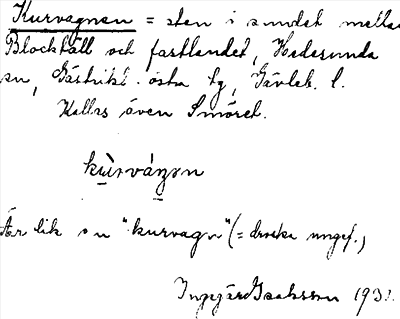 Kurvagnen = sten i sundet mella
Blockhäll och fastlandet, Hedesunda
sn, Gästrikl. östra tg, Gävleb. l.
Kallas även Smöret.
kùrvágɳn
Är lik en "kurvagn" (= droska ungef.)
Ingegärd Isaksson 193